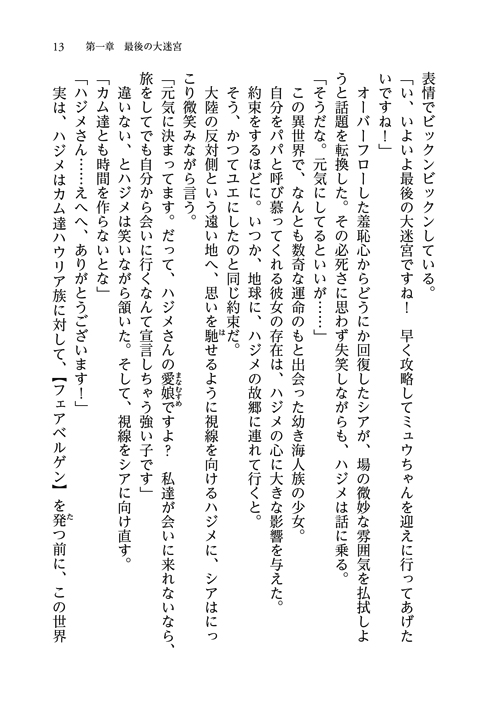 13　第一章　最後の大迷宮
表情でビックンビックンしている。
「い、いよいよ最後の大迷宮ですね！　早く攻略してミュウちゃんを迎えに行ってあげた
いですね！」
オーバーフローした羞恥心からどうにか回復したシアが、場の微妙な雰囲気を払拭しよ
うと話題を転換した。その必死さに思わず失笑しながらも、ハジメは話に乗る。
「そうだな。元気にしてるといいが……」
この異世界で、なんとも数奇な運命のもと出会った幼き海人族の少女。
自分をパパと呼び慕ってくれる彼女の存在は、ハジメの心に大きな影響を与えた。
約束をするほどに。いつか、地球に、ハジメの故郷に連れて行くと。
そう、かつてユエにしたのと同じ約束だ。
大陸の反対側という遠い地へ、思いを馳は せるように視線を向けるハジメに、シアはにっ
こり微笑みながら言う。
「元気に決まってます。だって、ハジメさんの愛娘まなむすめですよ？　私達が会いに来れないなら、
旅をしてでも自分から会いに行くなんて宣言しちゃう強い子です」
違いない、とハジメは笑いながら頷いた。そして、視線をシアに向け直す。
「カム達とも時間を作らないとな」
「ハジメさん……えへへ、ありがとうございます！」
実は、ハジメはカム達ハウリア族に対して、【フェアベルゲン】を発た つ前に、この世界